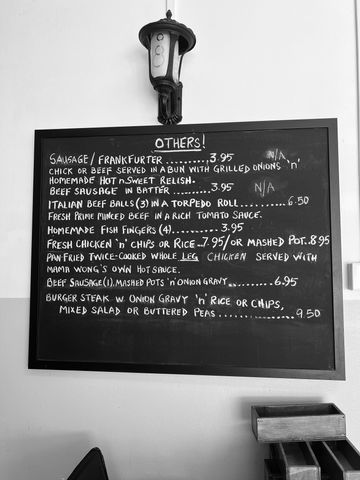 8
OTHERS!
SAUSAGE/FRANKFURTER..........,3.95 N/A
CHICK OR BEEF SERVED IN A BUN WITH GRILLED ONIONS 'n'
HOMEMADE HOT n SWEET RELISH.
BEEF SAUSAGE IN BATTER..........3.95 N/A
ITALIAN BEEF BALLS (3) IN A TORPEDO ROLL..............6.50
FRESH PRIME MINCED BEEF IN A RICH TOMATO SAUCE.
HOMEMADE FISH FINGERS (4)............3.95
FRESH CHICKEN 'n' CHIPS OR RICE..7.95/OR MASHED POT..8.95
PAN FRIED TWICE-COOKED WHOLE LEG CHICKEN SERVED WITH
MAMA WONG'S OWN HOT SAUCE.
BEEF SAUSAGE (1), MASHED POTS 'n' ONION GRAVY...........6.95
BURGER STEAK W. ONION GRAVY 'n' RICE OR CHIPS,
MIXED SALAD OR BUTTERED PEAS.................9.50